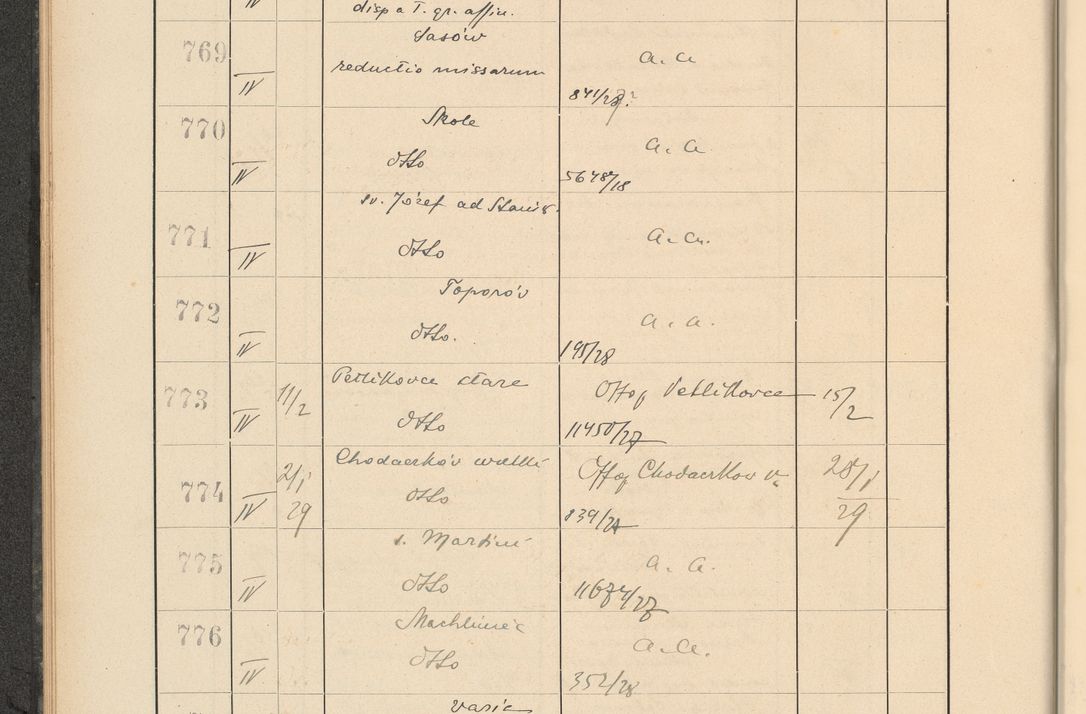 IV disp a T. gr. affin.
769 IV Sasów
reductio missarum a. a
841/28
770 IV Skole
dtto a. a.
5648/18
771 IV sv. Józef ad Stanis.
dtto a. a.
772 IV Toporóv
dtto. a. a.
195/28
773 IV 11/2 Petlikovce stare
dtto Offoq Petlikovce 15/2
11450/27
774 IV 21/1 29 Chodaczków wielki
dtto Offoq Chodaczkov v. 28/1 29
839/27
775 IV s. Martini
dtto a. a.
11674/27
776 IV Machliniec
dtto a. a.
352/28